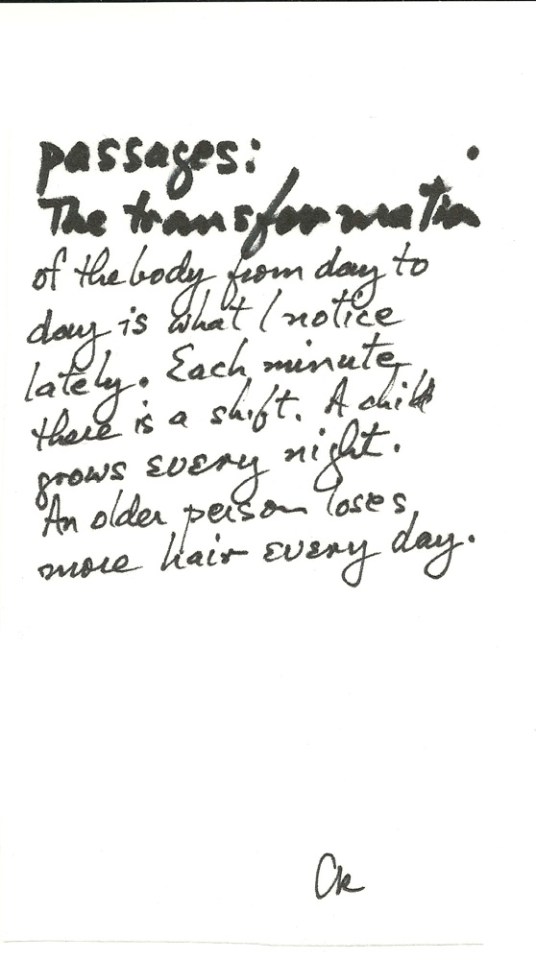 passages:
The transformation
of the body from day to
day is what I notice
lately. Each minute
there is a shift. A child
grows every night.
An older person loses
more hair every day.
Ck